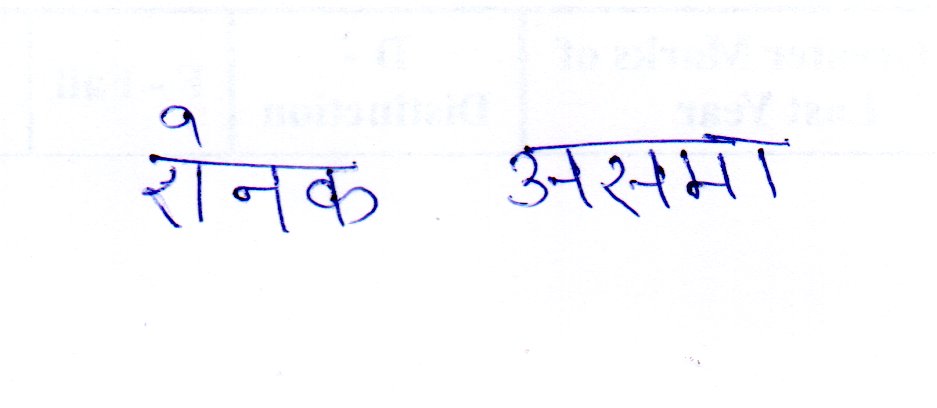 रोनक असमा